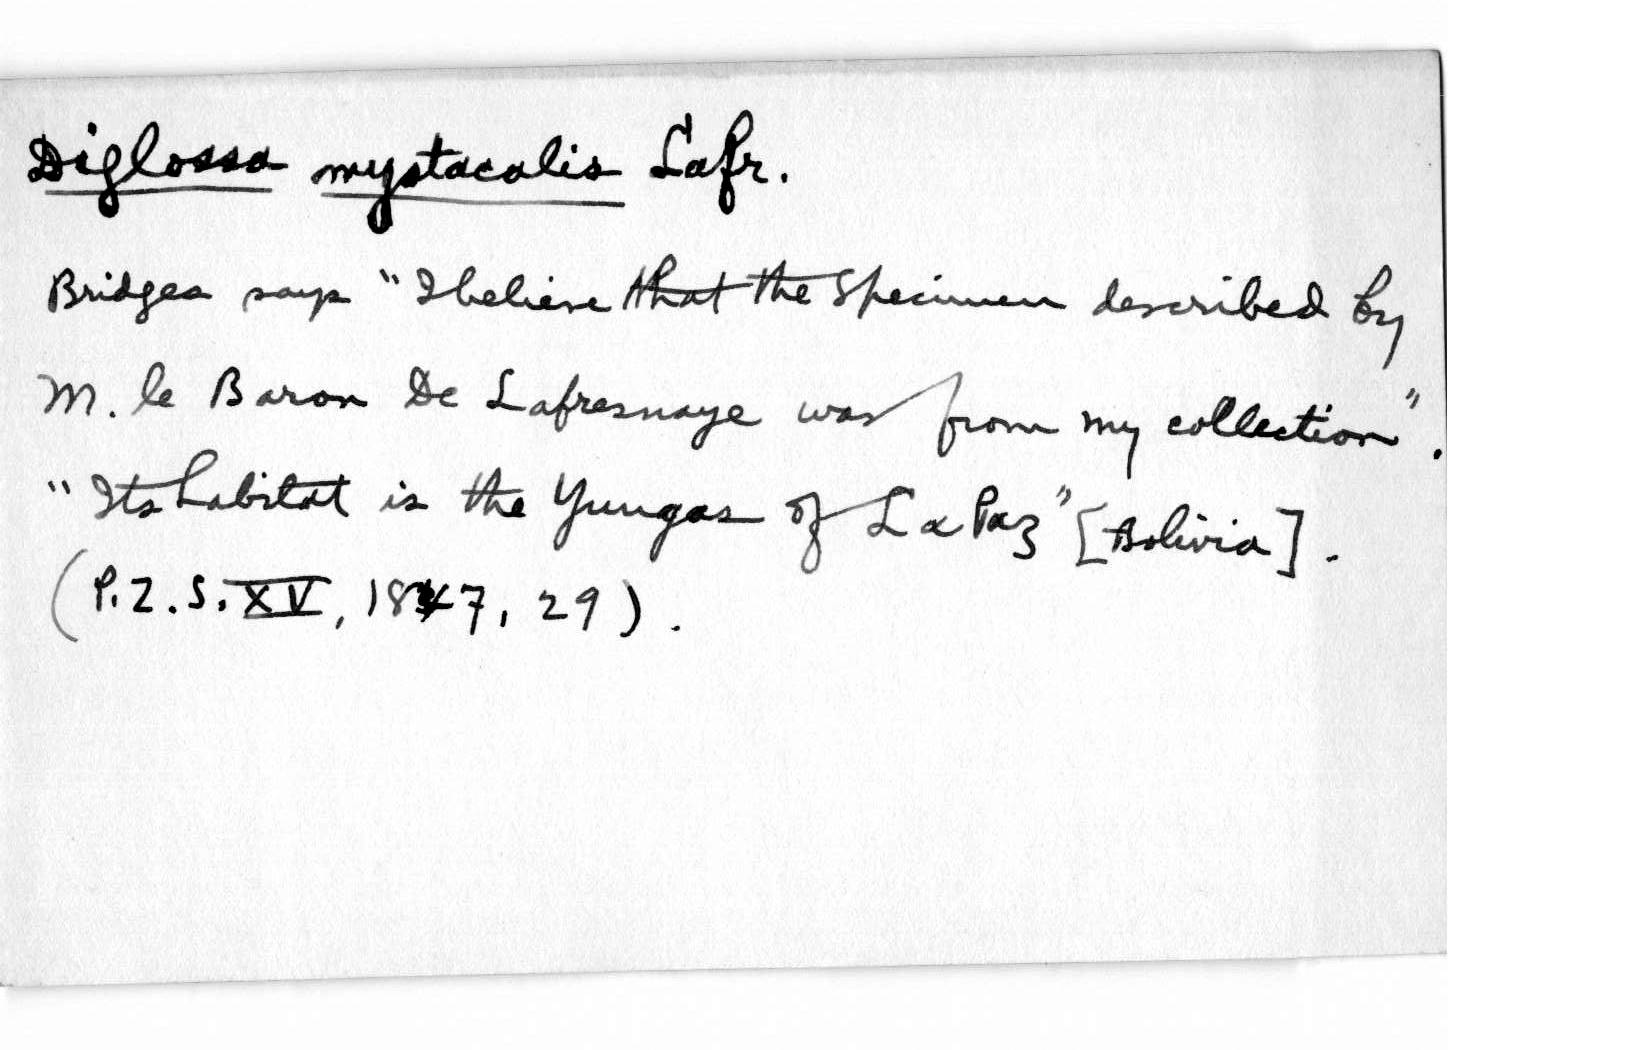 Diglossa mystacalis Lafr.
Bridges says "I believe that the specimen described by
M. le Baron De Lafresnaye was from my collection".
"Its habitat is the Yungas of La Paz" [Bolivia].
(P.Z.S. XV, 1847, 29).